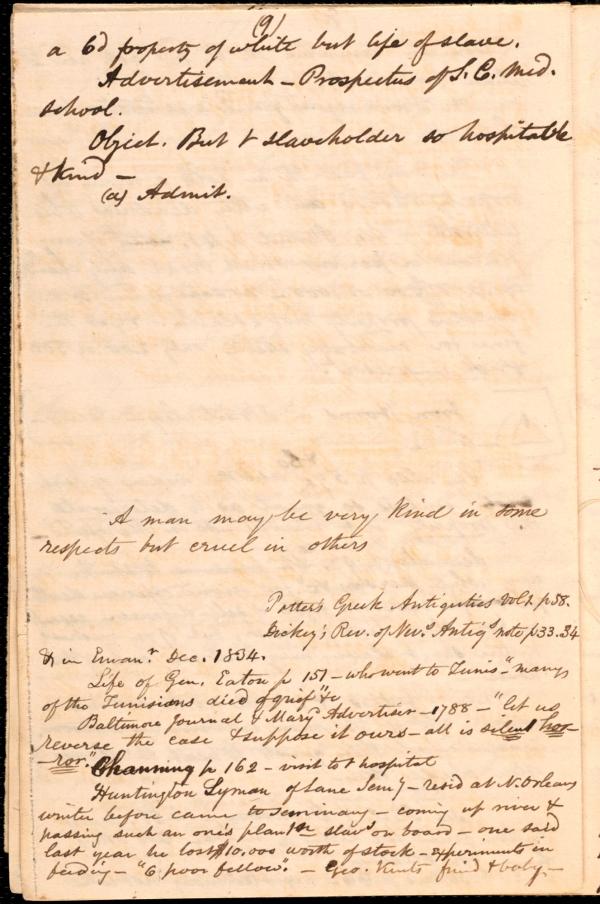 9)
a 6d property of white but life of slave.
Advertisement – Prospectus of S. C. Med.
school.
Object. But t slaveholder so hospitable
& kind –
(a) Admit.
A man may be very kind in some
respects but cruel in others
Potter's Greek Antiquities Vol 1. p 58.
Dickey's Rev. of Nev.s Antiqs note p 33. 34
& in Emanr Dec. 1834.
Life of Gen. Eaton p 157 – who went to Tunis – "many
of the Tunisians died of grief" &c
Baltimore Journal & Mary Advertiser – 1788 – "let us
reverse the case & suppose it ours – all is silent hor
-ror."
Channing p 162 – visit to t hospital
Huntington Lyman of Lane Semy – resid at N. Orleans
winter before came to Seminary – coming up river &
passing such an one's plantn slavs on board – one said
last year he lost $10.000 worth of stock – experiments in
feeding – "6 poor fellow". – Geo. Kents frind & baby –